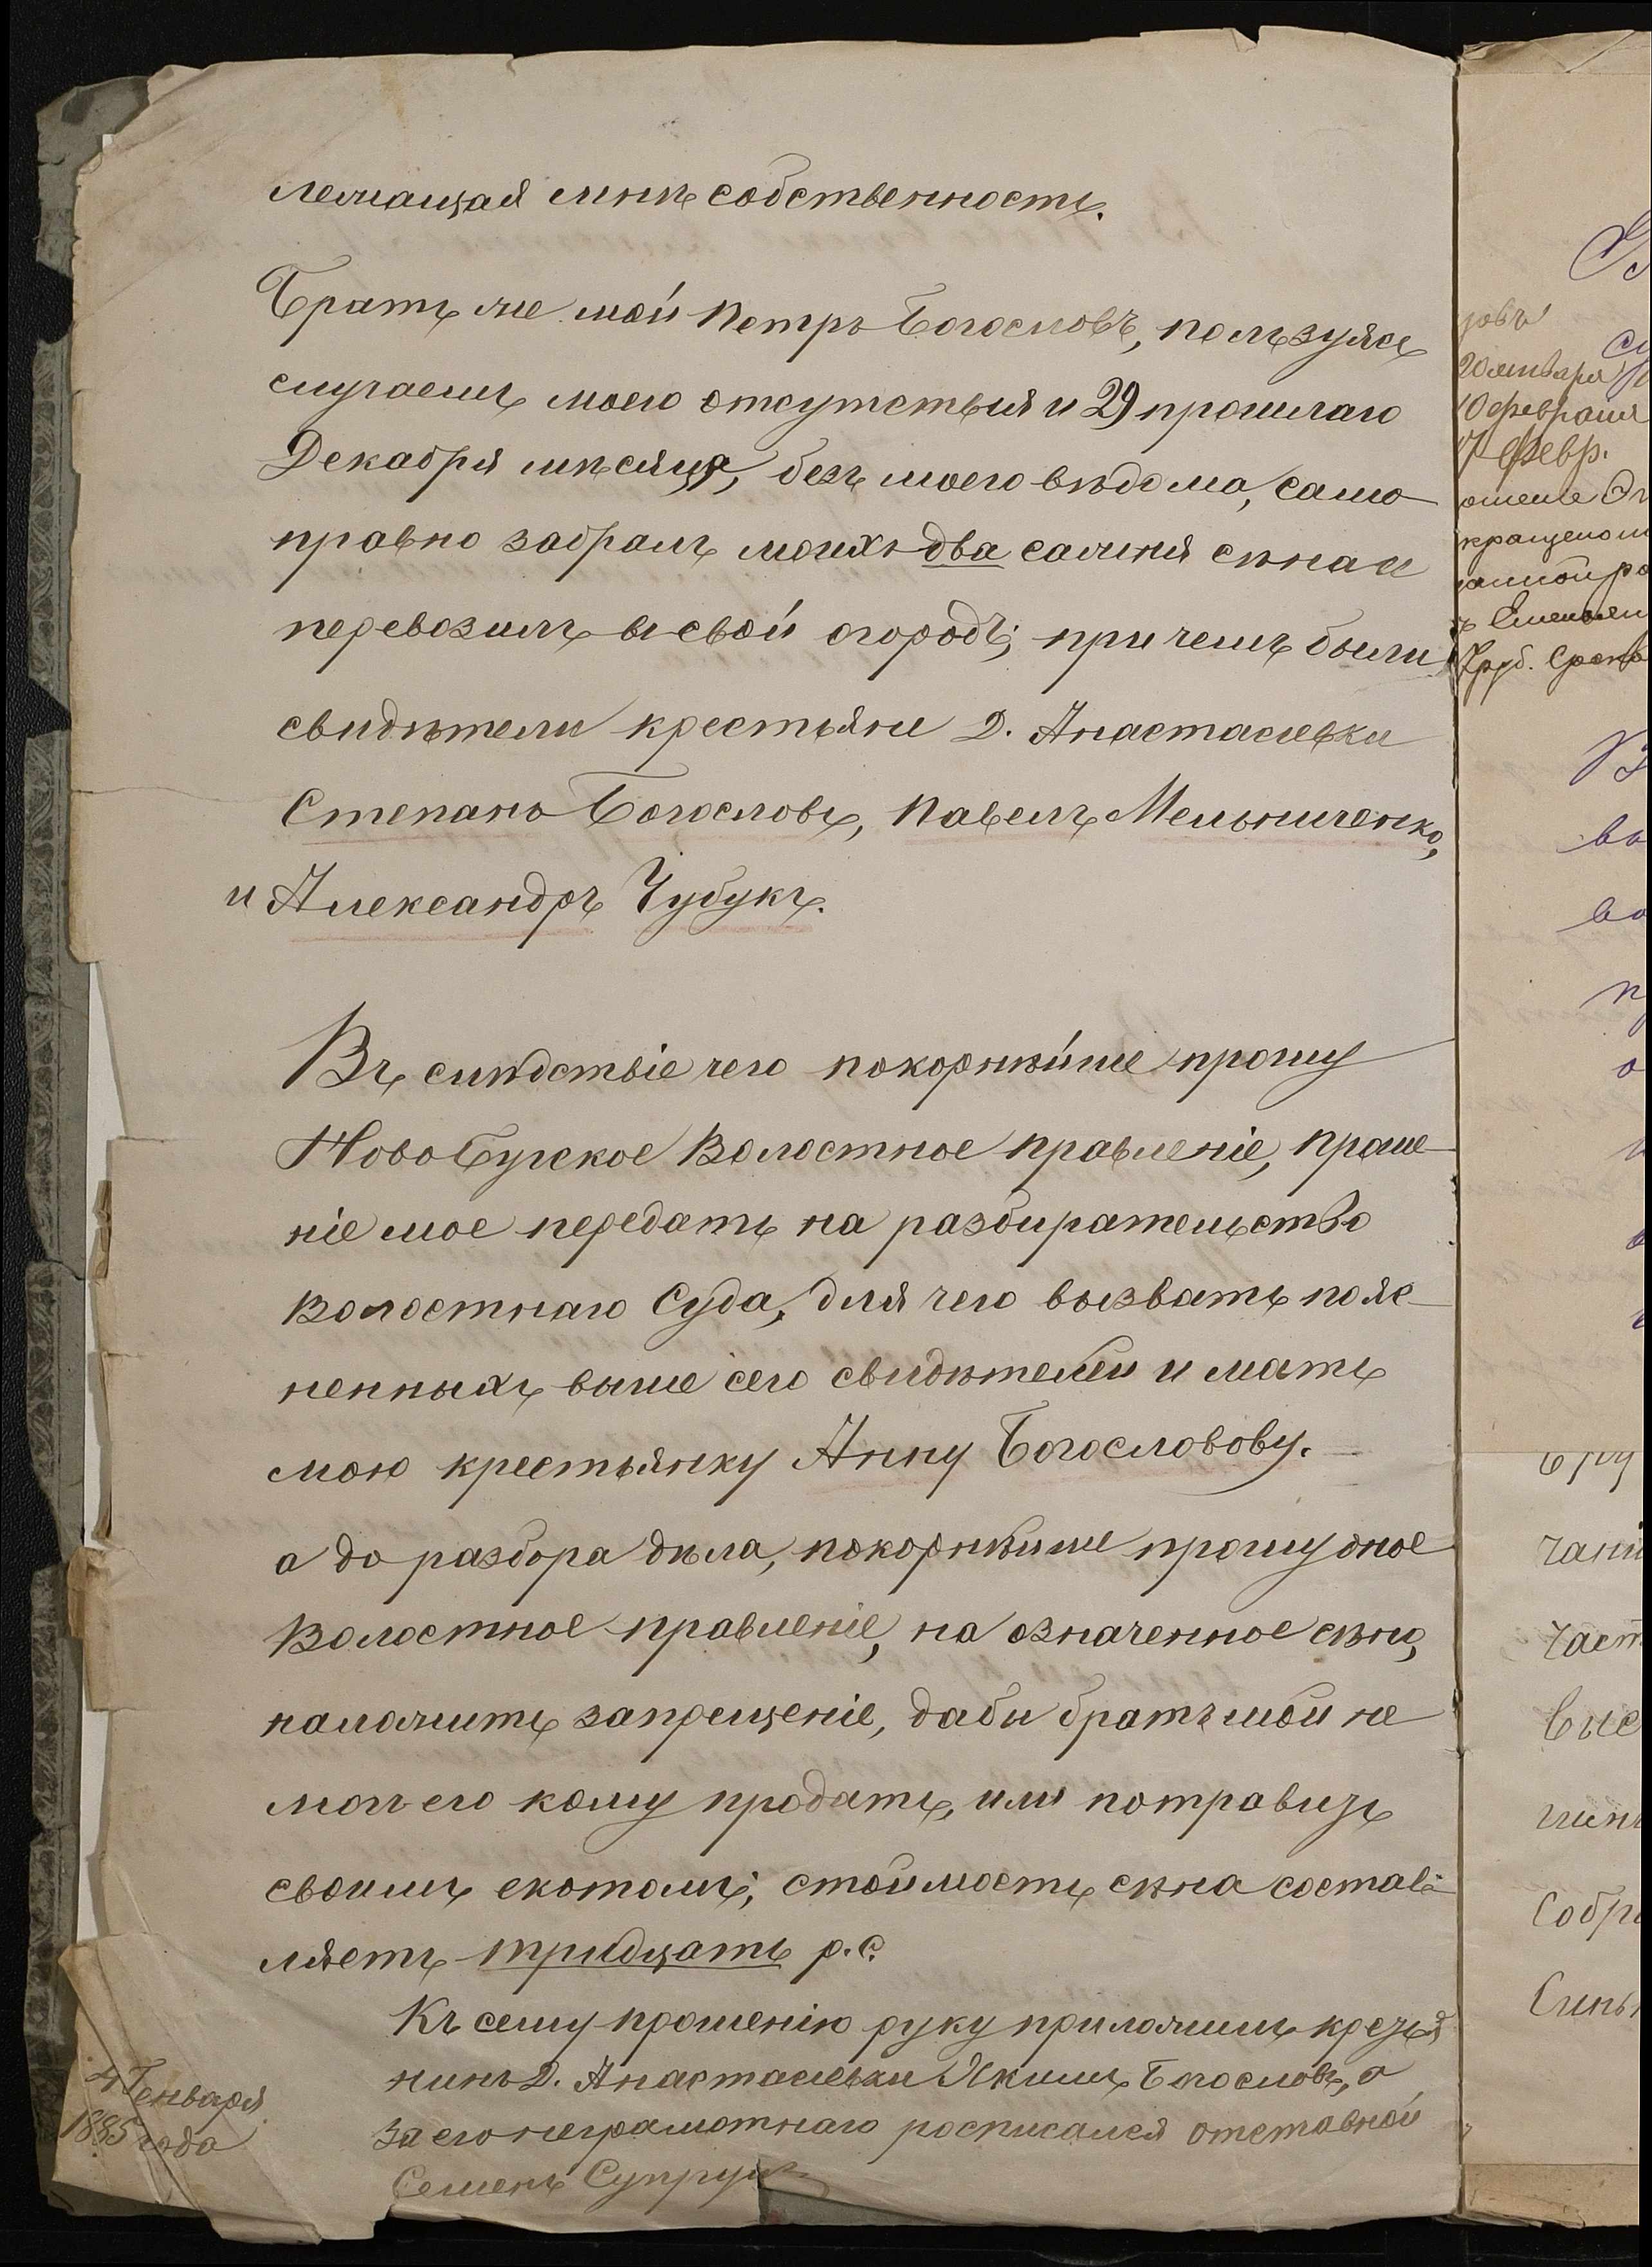 лежащая мнѣ собственность.
Братъ же мой Петръ Богословъ, пользуясь
случаемъ моего отсутствія и 29 прошлаго
Декабря мѣсяца, безъ моего вѣдома, само-
правно забралъ моихъ два сажня сѣна и
перевозилъ въ свой огородъ; при чемъ были
свидѣтели крестьяне д. Анастасіевки
Степанъ Богословъ, Павелъ Мельниченко,
и Александръ Чубукъ.
Въ слѣдствіе чего покорнѣйше прошу
НовоБугское Волостное Правленіе, проше-
ніе мое передать на разбирательство
Волостнаго Суда, для чего вызвать пояс-
ненныхъ выше сего свидѣтелей и мать
мою крестьянку Анну Богословову.
а до разбора дѣла, покорнѣйше прошу оное
Волостное правленіе, на означенное сѣно,
наложить запрещеніе, дабы братъ мой не
могъ его кому продать, или потравизь
своимъ скотомъ; стоимость сѣна состав-
ляетъ тридцать р. с.
Къ сему прошенію руку приложилъ крезья
нинъ д. Анастасіевки Якимъ Богословъ, а
за его неграмотнаго росписался отставной
Семенъ Супрун
4 Генваря
1885 года
20 января
10 февраля
7 февр.